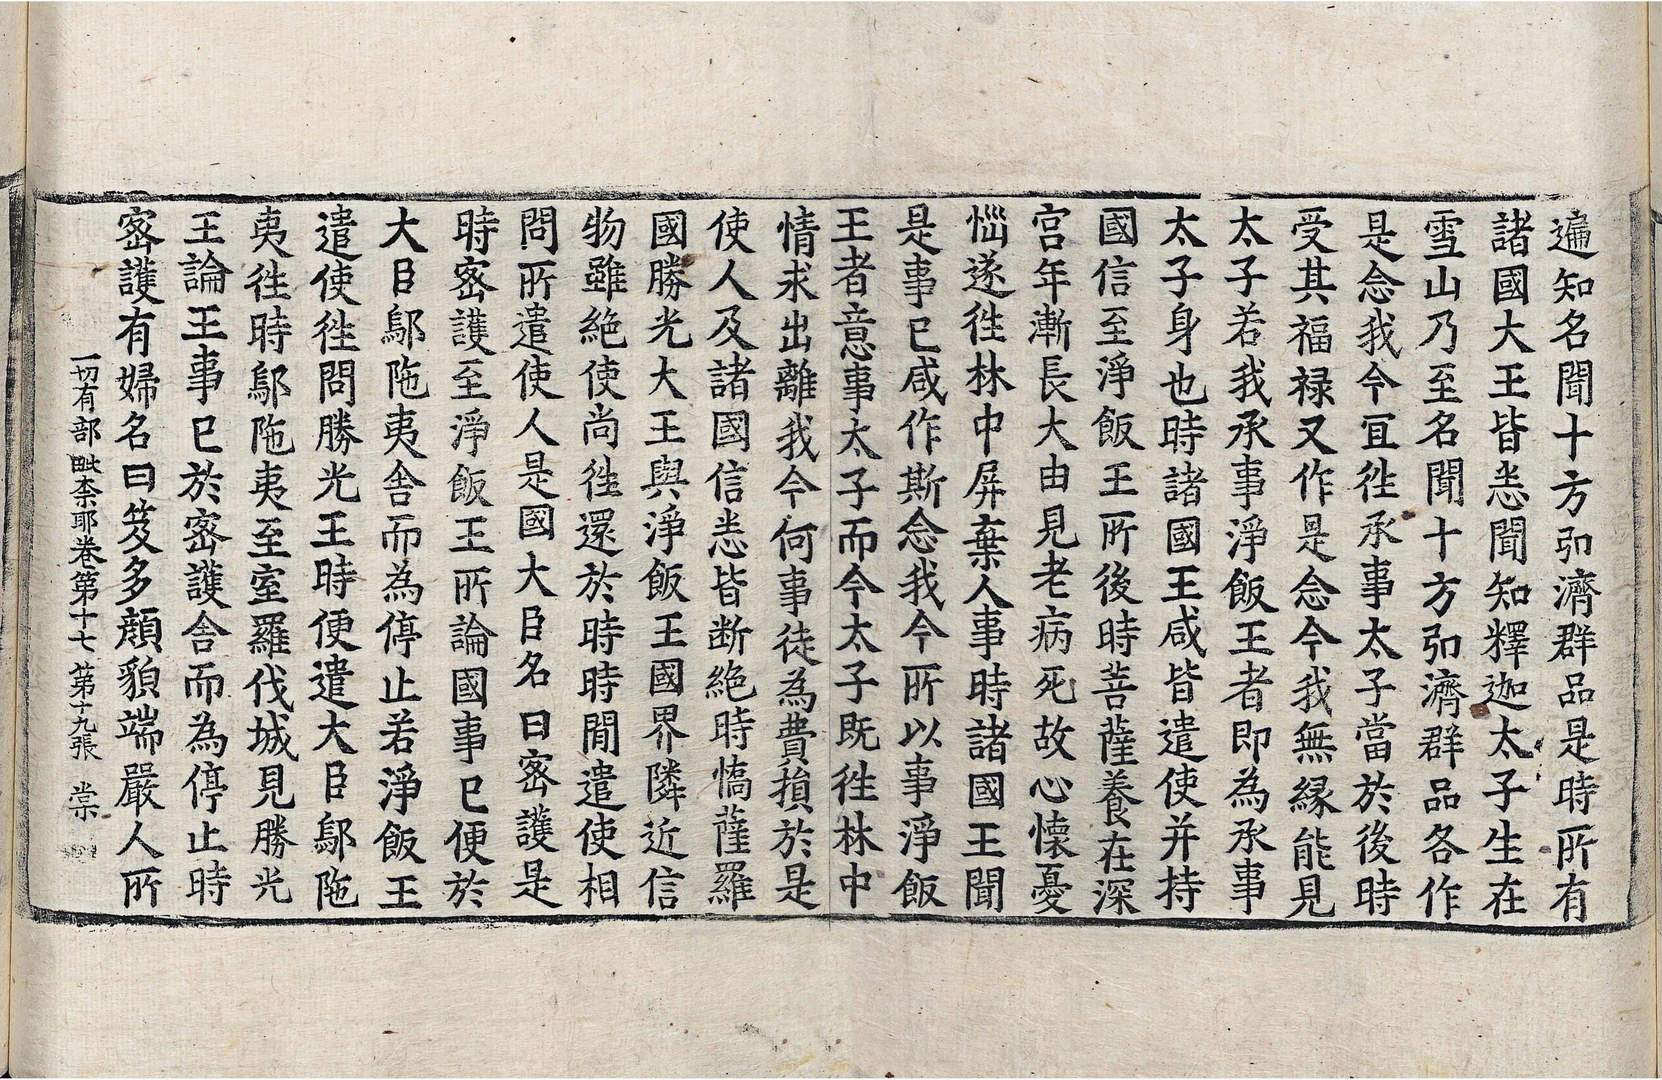 遍知名聞十方弘濟群品是時所有
諸國大王皆悉聞知釋迦太子生在
雪山乃至名聞十方弘濟群品各作
是念我今宜徃承事太子當於後時
受其福禄又作是念今我無縁能見
太子若我承事淨飯王者即為承事
太子身也時諸國王咸皆遣使并持
國信至淨飯王所後時菩薩養在深
宮年漸長大由見老病死故心懷憂
惱遂徃林中屏棄人事時諸國王聞
是事已咸作斯念我今所以事淨飯
王者意事太子而今太子既徃林中
情求出離我今何事徒為費損於是
使人及諸國信悉皆断絶時憍薩羅
國勝光大王與淨飯王國界隣近信
物雖絶使尚徃還於時時間遣使相
問所遣使人是國大臣名曰密護是
時密護至淨飯王所論國事已便於
大臣鄔陁夷舎而為停止若淨飯王
遣使徃問勝光王時便遣大臣鄔陁
夷徃時鄔陁夷至室羅伐城見勝光
王論王事已於密護舎而為停止時
密護有婦名曰笈多顔貌端嚴人所
一切有部毗柰耶卷第十七 第十九張 棠